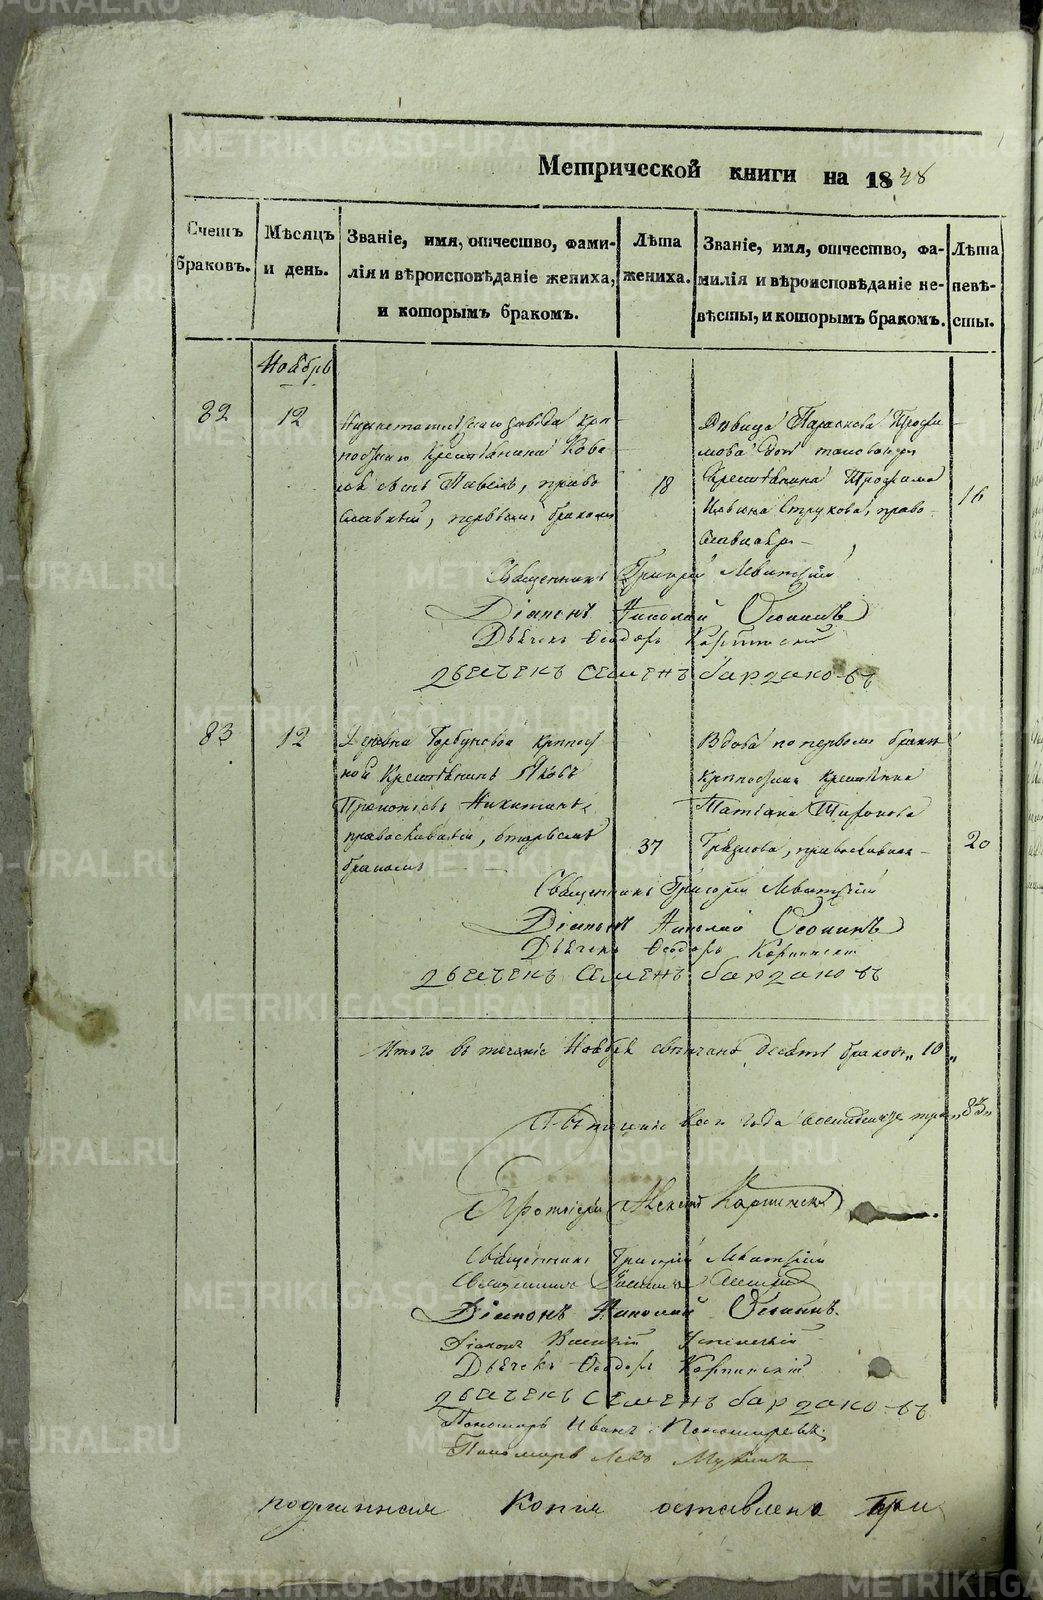 Метрической книги на 1848
Счетъ браковъ.
Мѣсяцъ и день.
Званіе, имя, отчество, фами-
лія и вѣроисповѣданіе жениха,
и которымъ бракомъ.
Лѣта
жениха.
Званіе, имя, отчество, фа-
милія и вѣроисповѣданіе не-
вѣсты, и которымъ бракомъ.
Лѣта
невѣ-
сты.
Ноябрь
82
12
завода крѣ-
постнаго Крестьянина
сынъ Павелъ, право
славный, первымъ бракомъ
18
Дѣвица Параскова Трофи
мова дочь таковагожъ
Крестьянина Трофима
Струкова, право-
славная
16
Священникъ Григорій
Діаконъ Николай Осокинъ
Дьячекъ Ѳеодоръ Карпинскій
дьячекъ Семенъ бардаковъ
83
12
Деревни Горбуновой крѣпост
ной Крестьянинъ Яковъ
Никитинъ,
православный, вторымъ
бракомъ
37
Вдова по первомъ бракѣ
крѣпостная крестьянка
Татіана
православная
20
Священникъ Григорій
Діаконъ Николай Осокинъ
Дьячекъ Ѳеодоръ Карпинскій
дьячекъ Семенъ бардаковъ
Итого въ теченіе Ноября свѣнчано десять браковъ „10„
А въ теченіе всего года восемьдесятъ три „83„
Протоіерей Алексій Карпинскій
Священникъ Григорій
Священникъ
Діаконъ Николай Осокинъ.
Діаконъ Василій Успенскій
Дьячекъ Ѳеодоръ Карпинскій
дьячекъ Семенъ бардаковъ
Пономарь Иванъ Пономаревъ
Пономарь Левъ
подлинная Копія оставлена при
METRIKI.GASO-URAL.RU